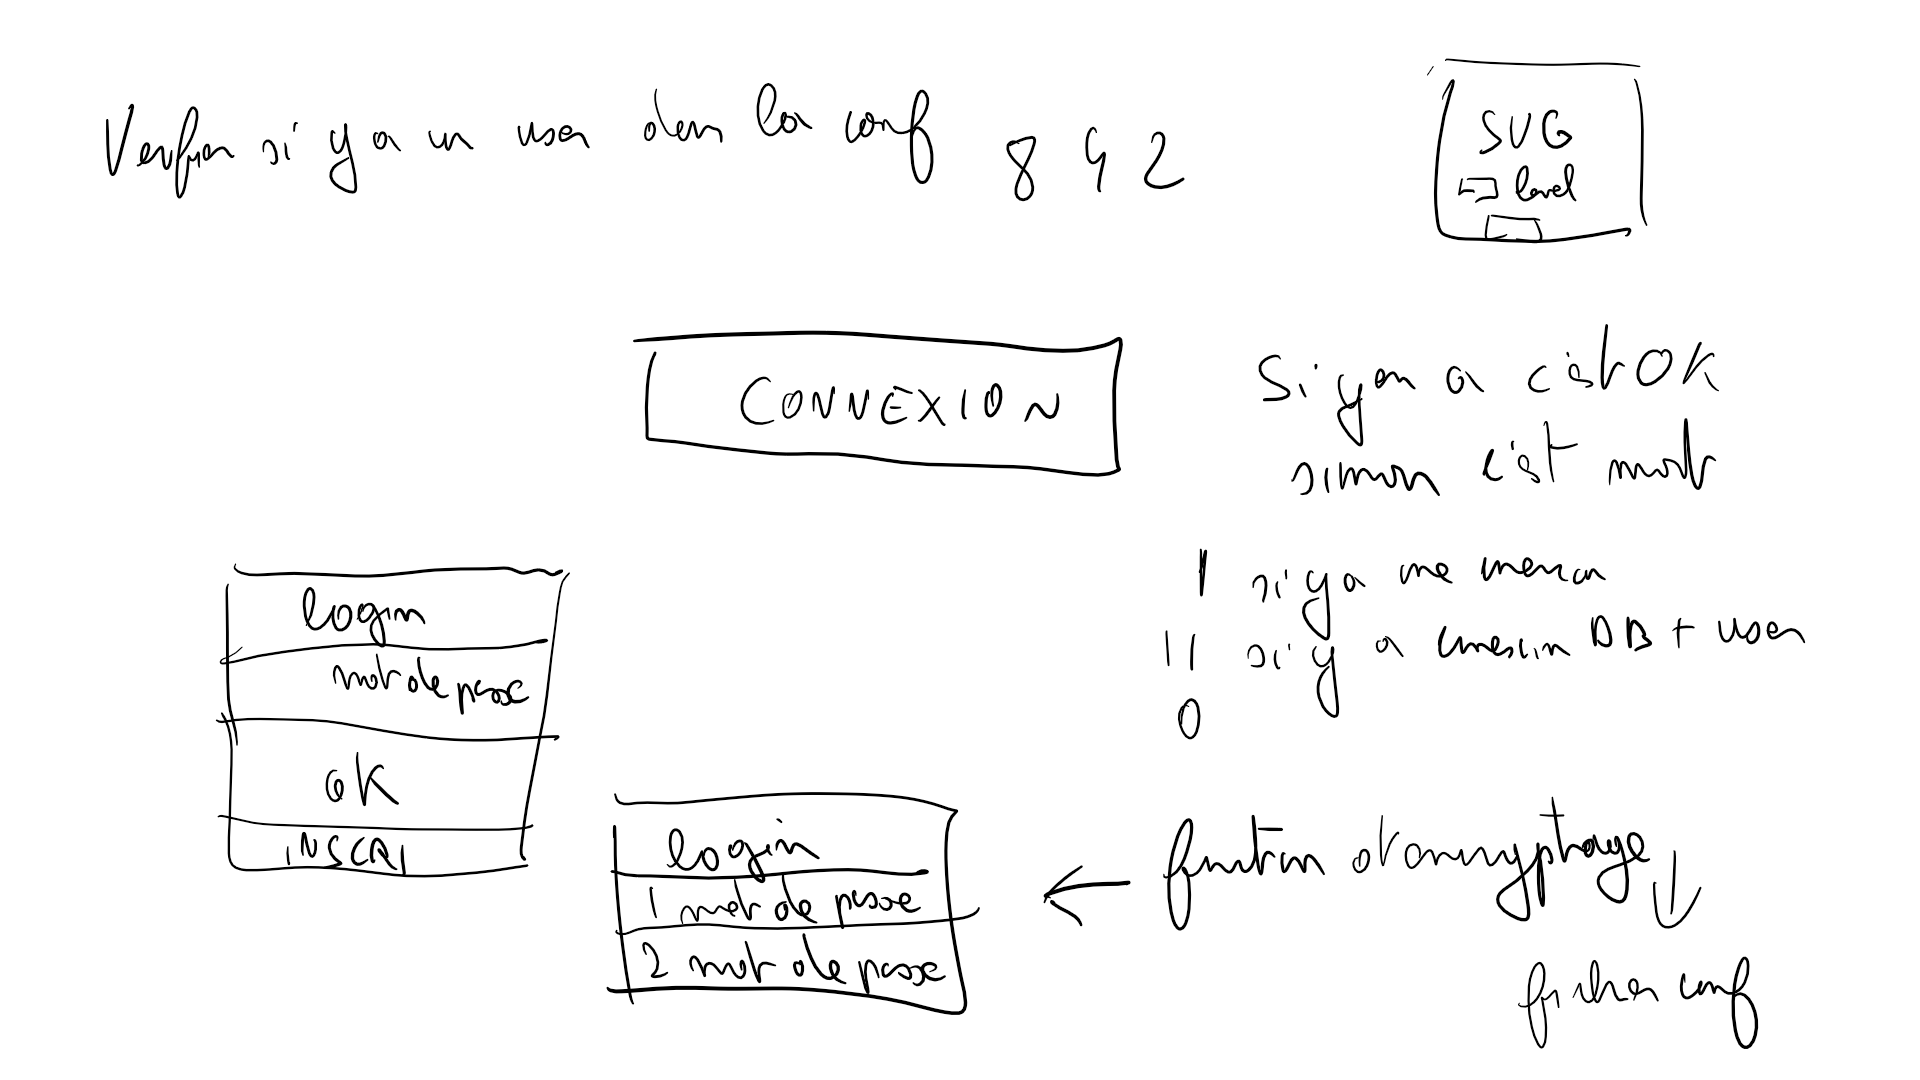 Verifier si y a un user dans la conf 8 4 2
SVG
level
CONNEXION
Si y en a c'est OK
sinon c'est mort
1 si y a une
11 si y a connexion DB + user
0
login
mot de passe
OK
INSCRI
login
1 mot de passe
2 mot de passe
fonction d'encryptage
fichier conf